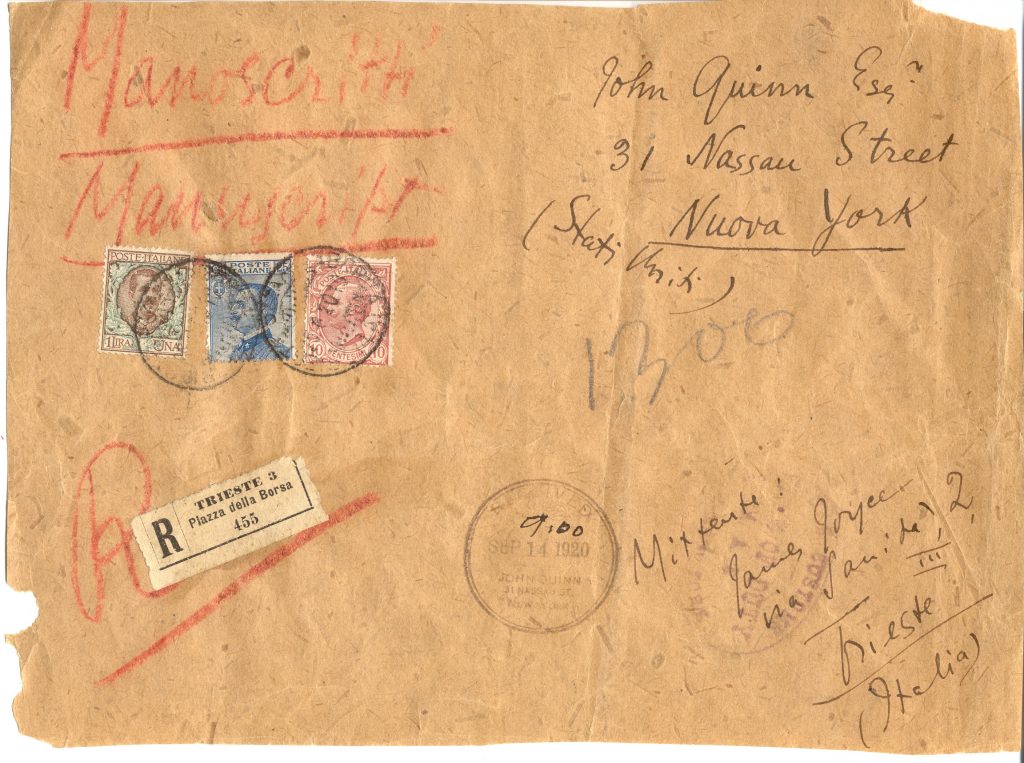 Manoscritti
Manuscript
John Quinn Esqr
31 Nassau Street
Nuova York
(Stati Uniti)
POSTE ITALIANE
1 LIRA UNA
POSTE ITALIANE
10 CENTESIMI 10
1300
R
R
TRIESTE 3
Piazza della Borsa
455
RECEIVED
9.00
SEP 14 1920
JOHN QUINN
31 NASSAU ST.
NEW YORK
Mittente:
James Joyce
via Sanità, 2, III
Trieste
(Italia)